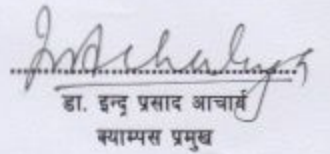 डा. इन्दु प्रसाद आचार्य
क्याम्पस प्रमुख